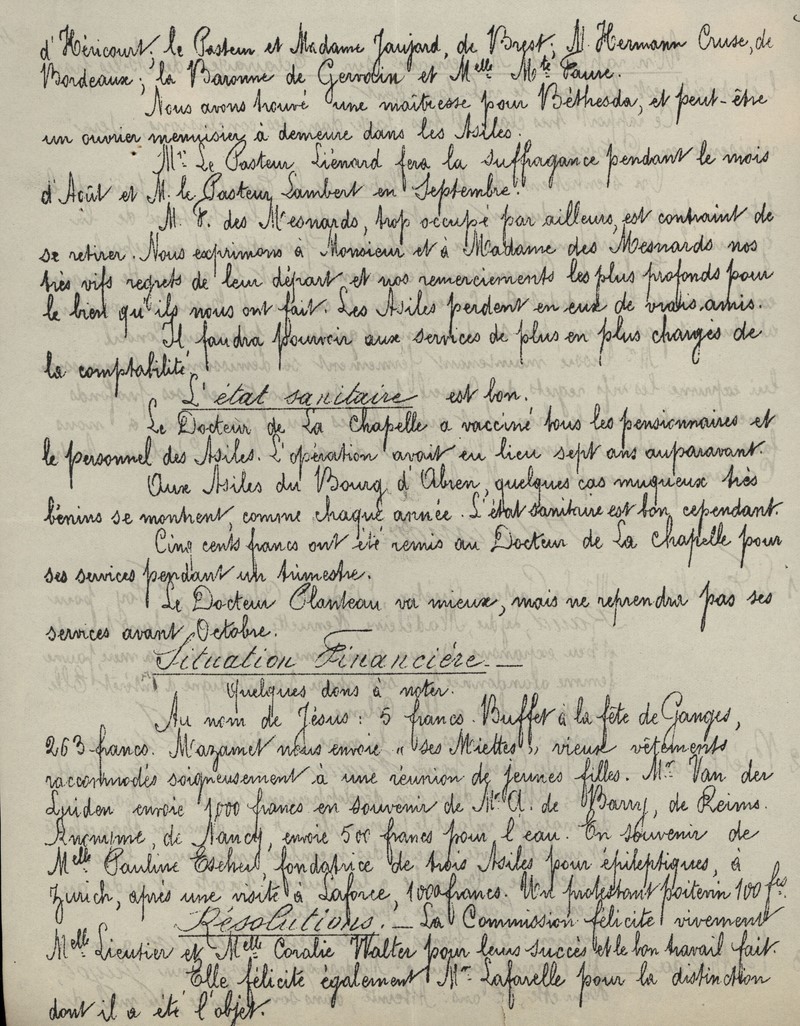 d'Héricourt; le Pasteur et Madame Jaujard, de Brest; M. Hermann Cruse, de
Bordeaux; la Baronne de Gervain et Melle Mte Faure.
Nous avons trouvé une maîtresse pour Béthesda, et peut-être
un ouvrier menuisier à demeure dans les Asiles.
Mr. Le Pasteur Liénard fera la suffragance pendant le mois
d'Août et M. le Pasteur Lambert en Septembre.
M. F. des Mesnards, trop occupé par ailleurs, est contraint de
se retirer. Nous exprimons à Monsieur et à Madame des Mesnards nos
très vifs regrets de leur départ et nos remerciements les plus profonds pour
le bien qu'ils nous ont fait. Les Asiles perdent en eux de vrais amis.
Il faudra pourvoir aux services de plus en plus chargés de
la comptabilité.
L'état sanitaire est bon.
Le Docteur de La Chapelle a vacciné tous les pensionnaires et
le personnel des Asiles. L'opération avait eu lieu sept ans auparavant.
Aux Asiles du Bourg d'Abren, quelques cas muqueux très
bénins se montrent, comme chaque année. L'état sanitaire est bon, cependant.
Cinq cents francs ont été remis au Docteur de La Chapelle pour
ses services pendant un trimestre.
Le Docteur Planteau va mieux, mais ne reprendra pas ses
services avant Octobre.
Situation Financière. —
Quelques dons à noter.
Au nom de Jésus : 5 francs. Buffet à la fête de Ganges,
263 francs. Mazamet nous envoie « ses Miettes » vieux vêtements
raccommodés soigneusement à une réunion de jeunes filles. Mr Van der
Luiden envoie 1000 francs en souvenir de Mr A. de Barry, de Reims.
Anonyme, de Nancy, envoie 500 francs pour l'eau. En souvenir de
Melle Pauline Escher, fondatrice de trois Asiles pour épileptiques, à
Zurich, après une visite à Laforce, 1000 francs. Un protestant poitevin 100 fcs.
Résolutions. — La Commission félicite vivement
Melle Lieutier et Melle Coralie Walter pour leurs succès et le bon travail fait.
Elle félicite également Mr Lafarelle pour la distinction
dont il a été l'objet.